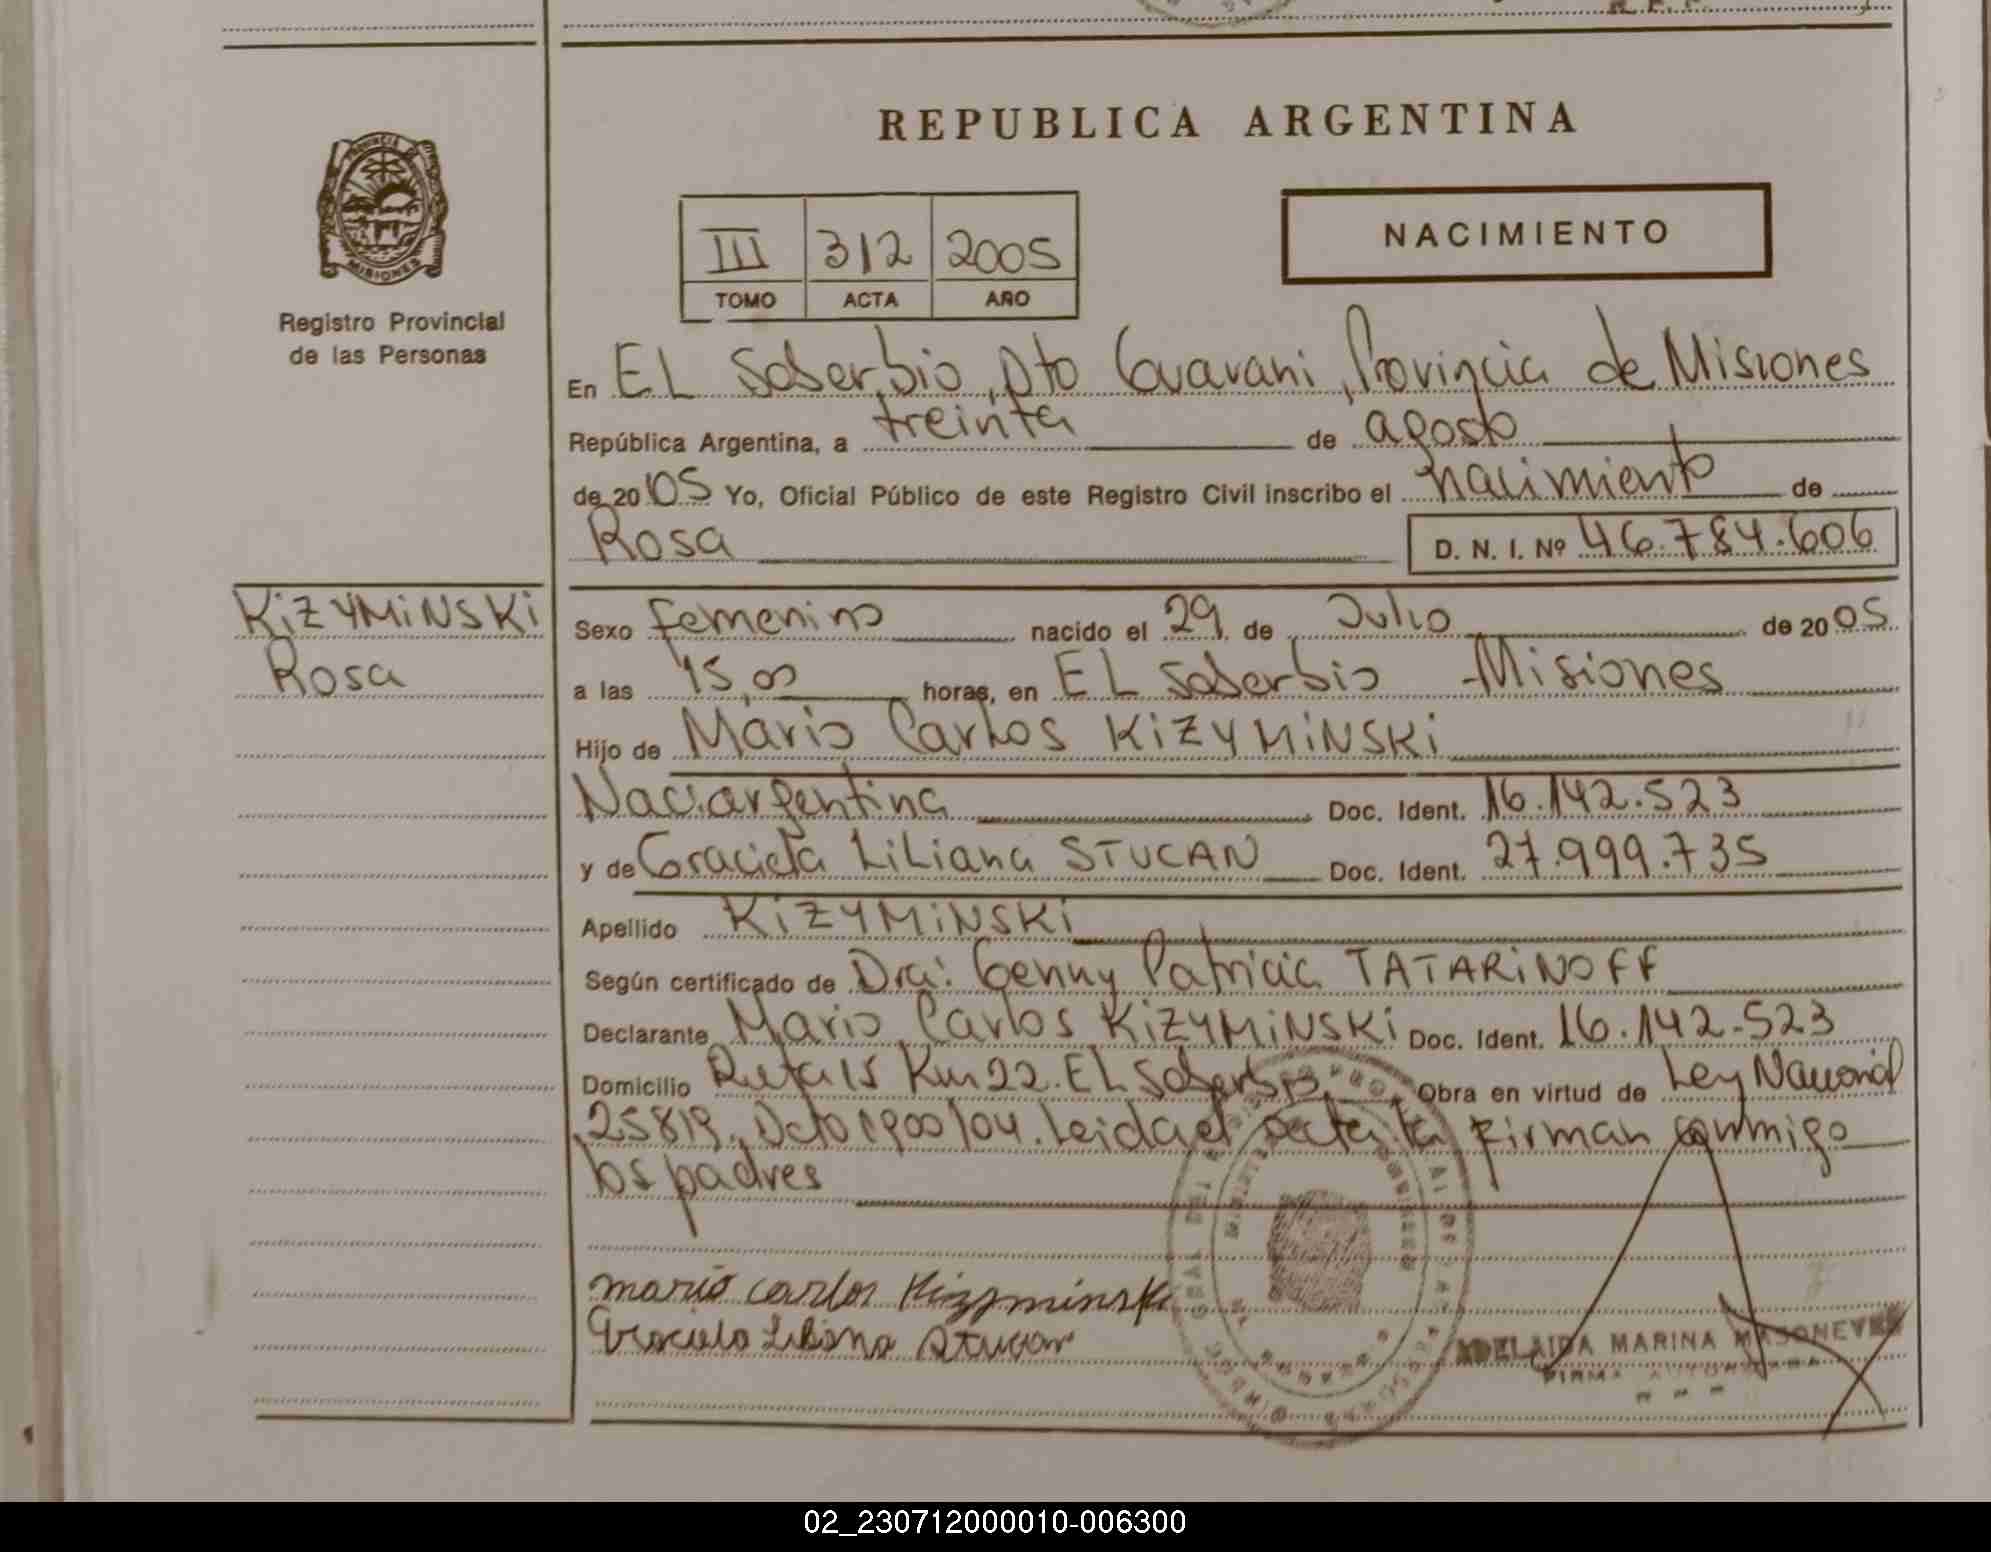 REPUBLICA ARGENTINA
PROVINCIA DE
MISIONES
Registro Provincial
de las Personas
III 312 2005
TOMO ACTA AÑO
NACIMIENTO
En EL Soberbio, Dto Guarani, Provincia de Misiones
República Argentina, a treinta de agosto
de 2005 Yo, Oficial Público de este Registro Civil inscribo el nacimiento de
Rosa D. N. I. Nº 46.784.606
KiZYMiNSKi
Rosa
Sexo femenino nacido el 29 de Julio de 2005
a las 15,00 horas, en EL Soberbio - Misiones
Hijo de Mario Carlos KiZYMiNSKi
Nac. argentina Doc. Ident. 16.142.523
y de Graciela Liliana STUCAN Doc. Ident. 27.999.735
Apellido KiZYMiNSKi
Según certificado de Dra: Genny Patricia TATARiNOFF
Declarante Mario Carlos KiZYMiNSKi Doc. Ident. 16.142.523
Domicilio Ruta 15 Km 22. EL Soberbio Obra en virtud de Ley Nacional
25819, Dcto 1900/04. Leida el acta la firman conmigo
los padres
mario carlos Kizyminski
Graciela Liliana Stucan
ADELAIDA MARINA
FIRMA AUTORIZADA
02_230712000010-006300